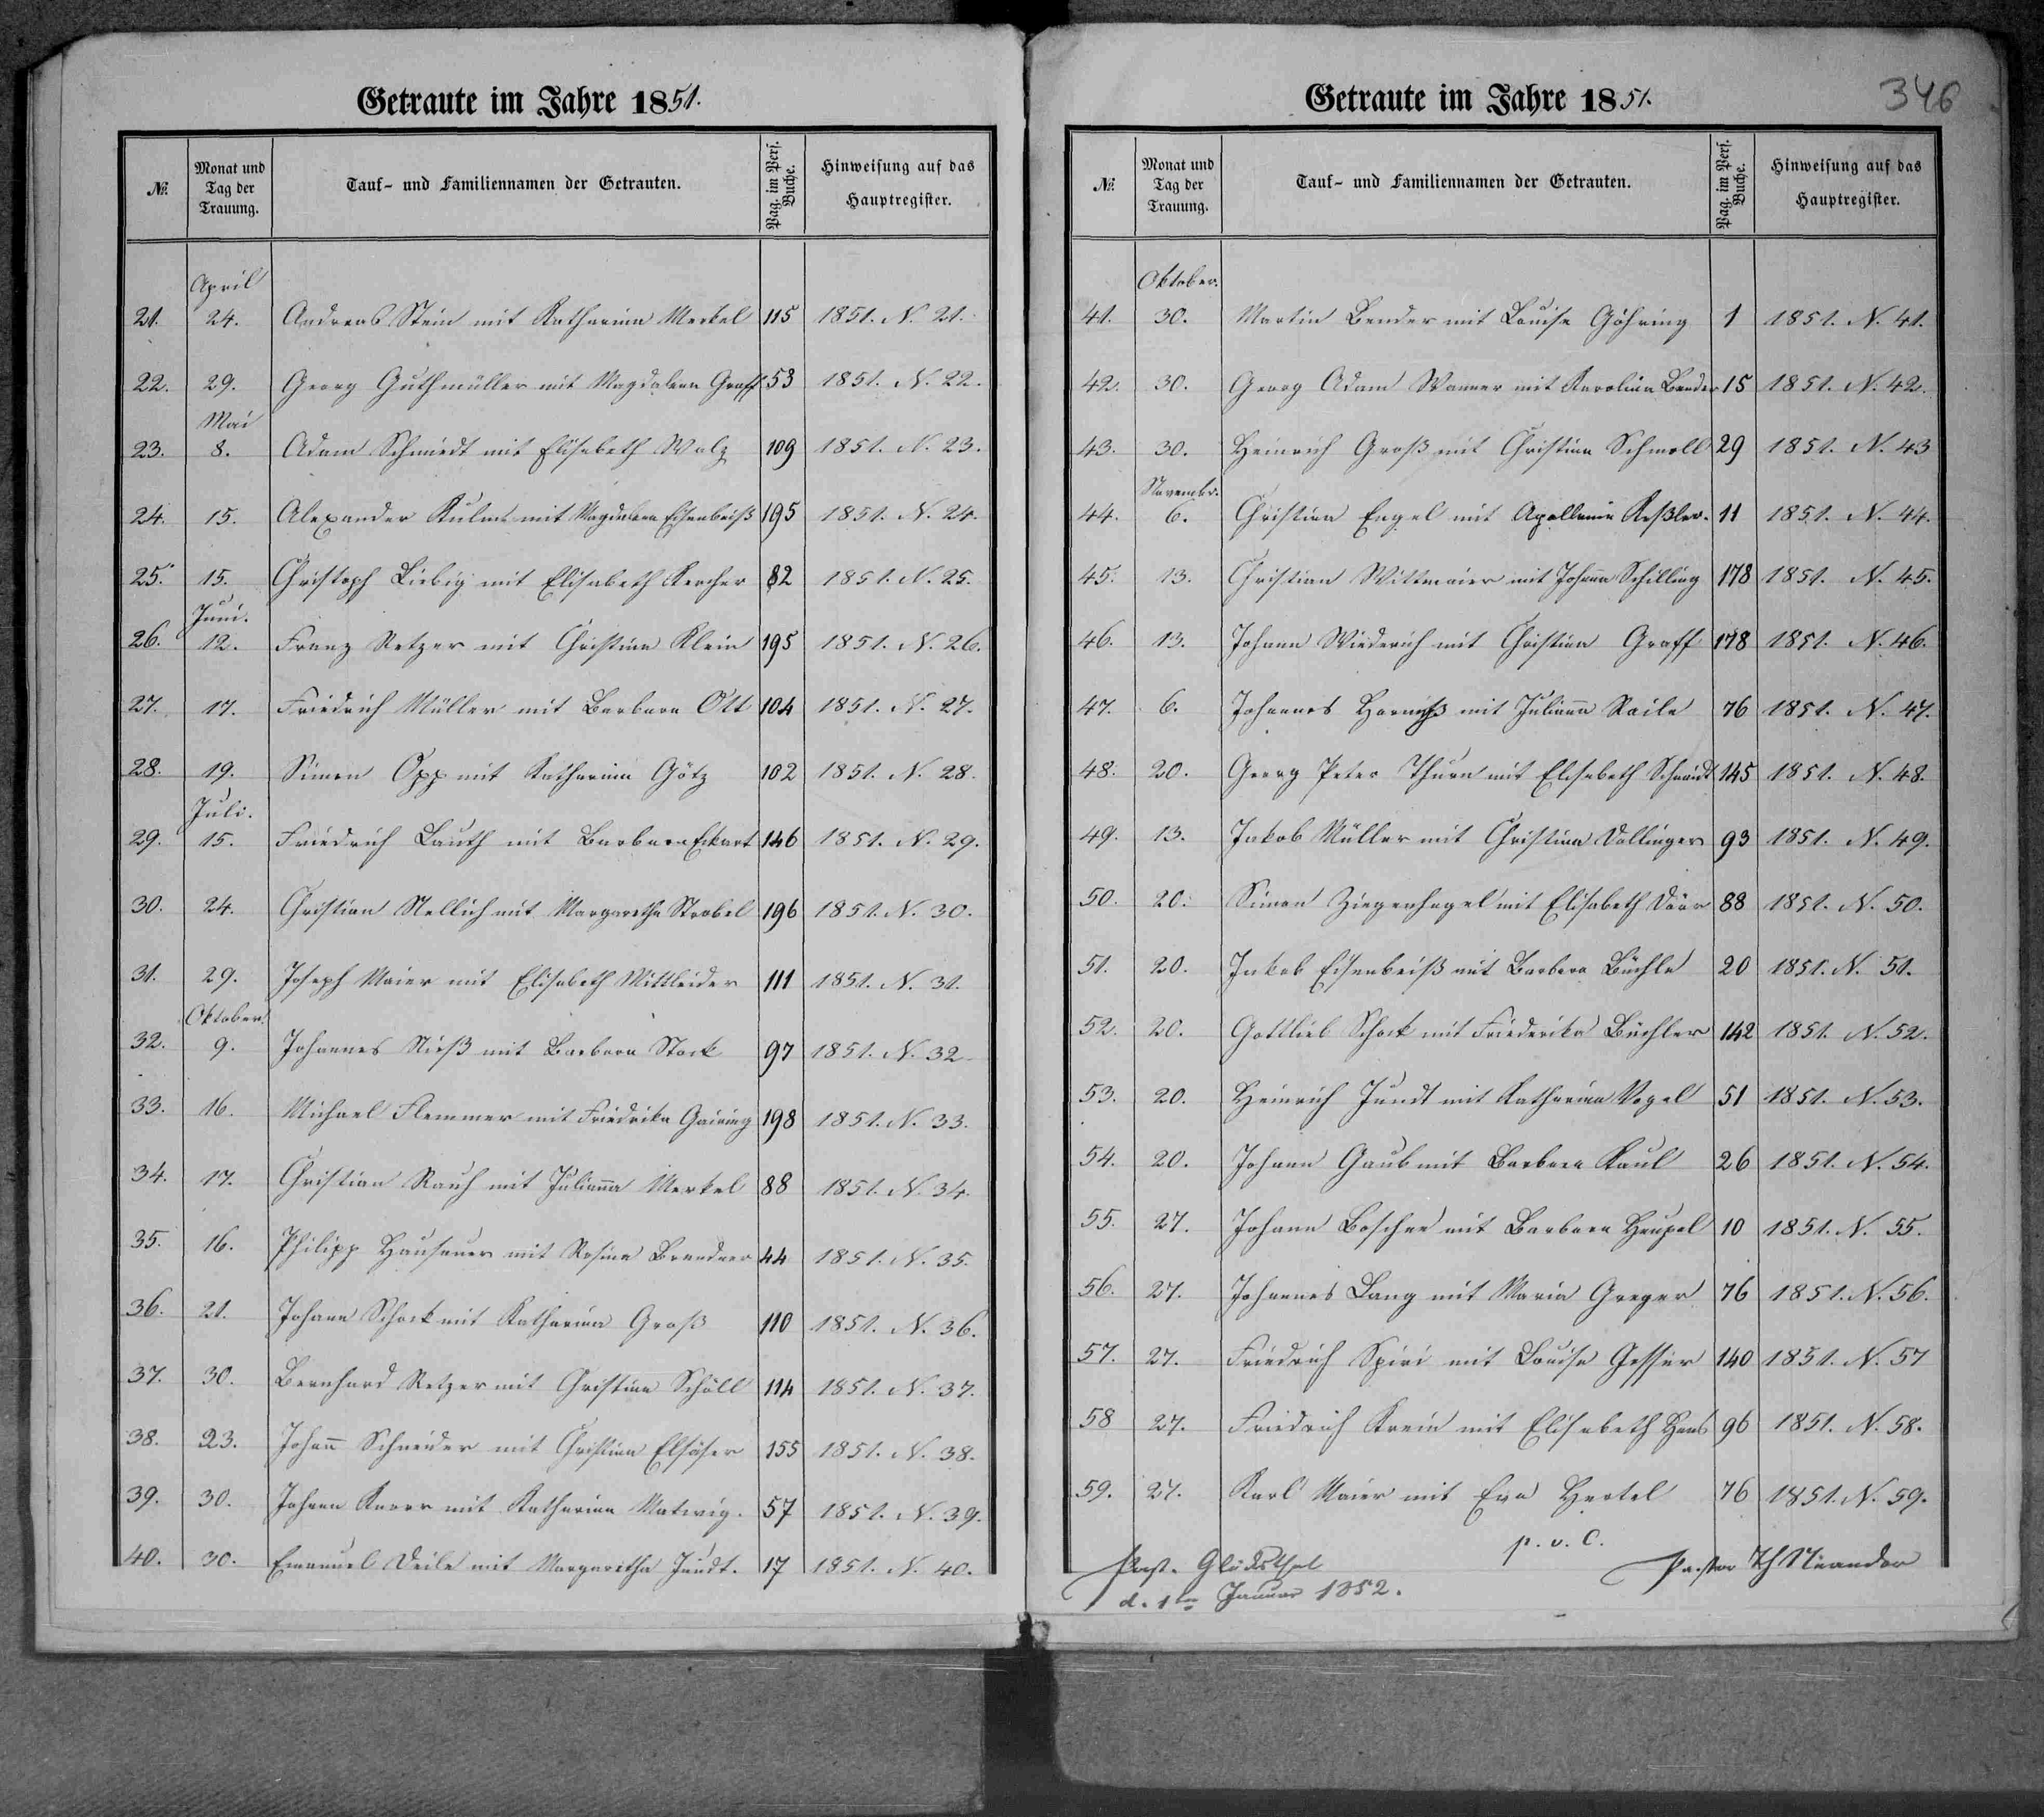 Getraute im Jahre 1851.
№ Monat und Tag der Trauung. Tauf- und Familiennamen der Getrauten. Pag. im Pers. Buche. Hinweisung auf das Hauptregister.
April
21. 24. Andreas Stein mit Katharina Merkel 115 1851. N. 21.
22. 29. Georg Guthmüller mit Magdalena Graff 53 1851. N. 22.
Mai
23. 8. Adam Schmidt mit Elisabeth Walz 109 1851. N. 23.
24. 15. Alexander Kulm mit Magdalena Eisenbeiß 195 1851. N. 24.
25. 15. Christoph Liebig mit Elisabeth Kercher 82 1851. N. 25.
Juni.
26. 12. Franz Retzer mit Christina Klein 195 1851. N. 26.
27. 17. Friedrich Müller mit Barbara Ott 104 1851. N. 27.
28. 19. Simon Opp mit Katharina Götz 102 1851. N. 28.
Juli.
29. 15. Friedrich Lauth mit Barbara Eckart 146 1851. N. 29.
30. 24. Christian Nellich mit Margaretha Strobel 196 1851. N. 30.
31. 29. Joseph Maier mit Elisabeth Mittleider 111 1851. N. 31.
Oktober.
32. 9. Johannes Nieß mit Barbara Stock 97 1851. N. 32
33. 16. Michael Flemmer mit Friedrika Gairing 198 1851. N. 33.
34. 17. Christian Rauh mit Julianna Merkel 88 1851. N. 34.
35. 16. Philipp Hausauer mit Rosina Brandner 44 1851. N. 35.
36. 21. Johann Schock mit Katharina Groß 110 1851. N. 36.
37. 30. Bernhard Retzer mit Christina Schöll 114 1851. N. 37.
38. 23. Johann Schneider mit Christina Elsäser 155 1851. N. 38.
39. 30. Johann Knorr mit Katharina Matwig. 57 1851. N. 39.
40. 30. Emanuel Deile mit Margaretha Jundt. 17 1851. N. 40.
Getraute im Jahre 1851.
346
№ Monat und Tag der Trauung. Tauf- und Familiennamen der Getrauten. Pag. im Pers. Buche. Hinweisung auf das Hauptregister.
Oktober.
41. 30. Martin Bender mit Louise Göhring 1 1851. N. 41.
42. 30. Georg Adam Wanner mit Karolina Bender 15 1851. N. 42.
43. 30. Heinrich Groß mit Christina Schmoll 29 1851. N. 43
Novembr.
44. 6. Christian Engel mit Apollonia Keßler. 11 1851. N. 44.
45. 13. Christian Wittmaier mit Johanna Schilling 178 1851. N. 45.
46. 13. Johann Wiederich mit Christina Graff 178 1851. N. 46.
47. 6. Johannes mit Julianna Raile 76 1851. N. 47.
48. 20. Georg Peter Thurn mit Elisabeth Schmidt 145 1851. N. 48.
49. 13. Jakob Müller mit Christina Dollinger 93 1851. N. 49.
50. 20. Simon Ziegenhagel mit Elisabeth Dörr 88 1851. N. 50.
51. 20. Jakob Eisenbeiß mit Barbara Büchle 20 1851. N. 51.
52. 20. Gottlieb Schock mit Friederika Büchler 142 1851. N. 52.
53. 20. Heinrich Jundt mit Katharina Vogel 51 1851. N. 53.
54. 20. Johann Gaub mit Barbara Kaul 26 1851. N. 54.
55. 27. Johann Boschee mit Barbara Heupel 10 1851. N. 55.
56. 27. Johannes Lang mit Maria Greger 76 1851. N. 56.
57. 27. Friedrich Spiri mit Louise 140 1851. N. 57
58 27. Friedrich Krein mit Elisabeth 96 1851. N. 58.
59. 27. Karl Maier mit Eva Hertel 76 1851. N. 59.
p. v. C.
Past. Glücksthal Pastor Th Neander
d. 1ten Januar 1852.